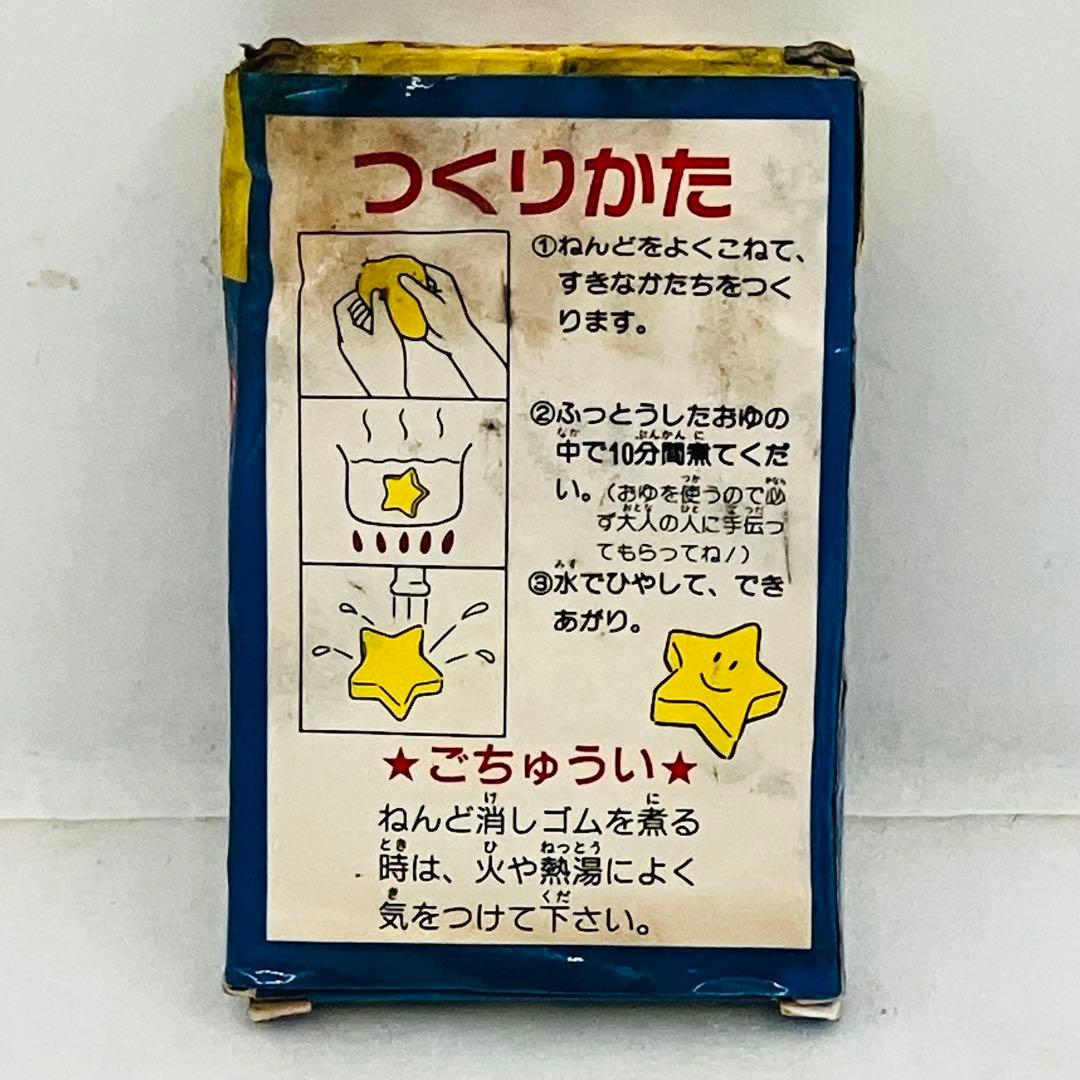 つくりかた
①ねんどをよくこねて、
すきなかたちをつく
ります。
②ふっとうしたおゆの
中で10分間煮てくだ
い。(おゆを使うので必
ず大人の人に手伝っ
てもらってね!)
③水でひやして、でき
あがり。
★ごちゅうい★
ねんど消しゴムを煮る
時は、火や熱湯によく
気をつけて下さい。